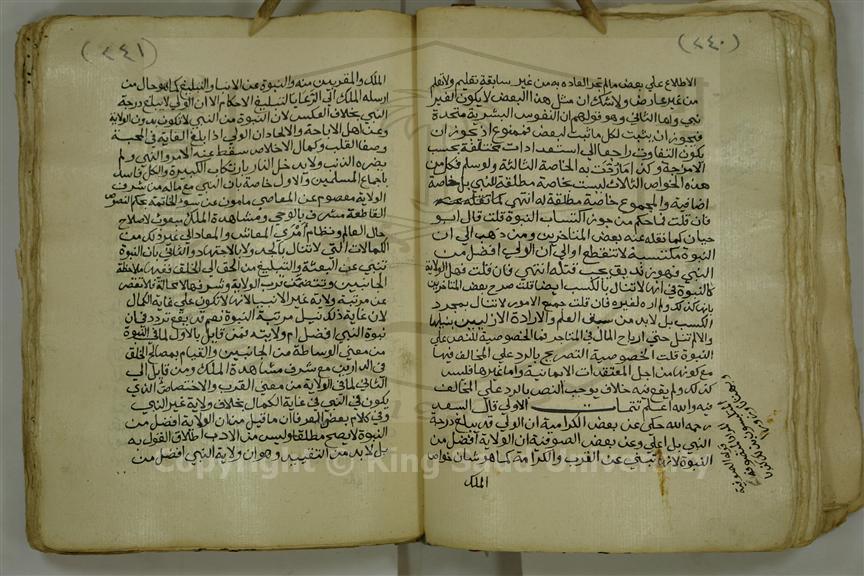 (٢٤٠)
الاطلاع على بعض مالم تجر العاده به من غير سابقة تعليم وتعلم
من غير عارض ولا شك ان مثل هذا البعض لا يكون لغير
نبي واما الثاني وهو قولهم ان النفوس البشرية متحدة
فيجوز ان يثبت لكل ماثبت لبعض فممنوع اذ يجوز ان
يكون التفاوت راجعا الى استعدادات مختلفة بحسب
الامزجة وكذا ردت به الخاصة الثالثة ولو سلم فكل من
هذه الخواص الثلاث ليست خاصة مطلقة للنبي بل خاصة
اضافية والمجموع خاصة مطلقة له انتهى
فان قلت فما حكم من جوز اكتساب النبوة قلت قال ابو
حيان كما نقله عنه بعض المتاخرين ومن ذهب الى ان
النبوة مكتسبة لا تنقطع او الى ان الولي افضل من
النبي فهو زنديق يجب قتله انتهى فان قلت فهل الولاية
كالنبوة في انها لا تنال بالكسب ايضا قلت صرح بعض المتاخرين
بانها كذلك فان قلت جميع الامور لا تنال بمجرد
الكسب بل لابد من سبق العلم والارادة الازليين بنيلها
والا لم تنل حتى ارباح المال في المتاجر فما الخصوصية للنص على
النبوة قلت الخصوصية التصريح بالرد على المخالف فيها
مع كونها من اجل المعتقدات الايمانية واما غيرها فليس
كذلك ولم يقع فيه خلاف يوجب النص بالرد على المخالف
فيه والله اعلم تتمات الاولى قال السعد
رحمه الله حكي عن بعض الكرامية ان الولي قد يبلغ درجة
النبي بل اعلى وعن بعض الصوفية ان الولاية افضل من
النبوة لانها تنبي عن القرب والكرامة كما هو شان خواص
الملك
(٢٤١)
الملك والمقربين منه والنبوة عن الانباء والتبليغ كما هو حال من
ارسله الملك الى الرعايا لتبليغ الاحكام الا ان الولي لا يبلغ درجة
النبي بخلاف العكس لان النبوة من النبي لا تكون بدون الولاية
وعن اهل الاباحة والالحاد ان الولي اذا بلغ الغاية في المحبة
وصفا القلب وكمال الاخلاص سقط عنه الامر والنهي ولم
يضره الذنب ولا يدخل النار بارتكاب الكبيرة والكل فاسد
باجماع المسلمين والاول خاصة بان النبي مع ماله من شرف
الولاية معصوم عن المعاصي مامون عن سوء الخاتمة بحكم النصوص
القاطعة مشرف بالوحي ومشاهدة الملك مبعوث لاصلاح
حال العالم ونظام امري المعاش والمعاد الى غير ذلك من
الكمالات التي لا تنال بالجد ولا بالاجتهاد والثاني بان النبوة
تنبي عن البعثة والتبليغ من الحق الى الخلق ففيها ملاحظة
الجانبين وتتضمن قرب الولاية وشرفها لا محالة فلا تقصر
عن مرتبة ولاية غير الانبيا لانها لا تكون على غاية الكمال
لان غاية ذلك نيل مرتبة النبوة نعم قد يقع تردد في ان
نبوة النبي افضل ام ولايته فمن قايل بالاول لما في النبوة
من معنى الوساطة من الجانبين والقيام بمصالح الخلق
في الدارين مع شرف مشاهدة الملك ومن قايل الى
الثاني لما في الولاية من معنى القرب والاختصاص الذي
يكون في النبي في غاية الكمال بخلاف ولاية غير النبي
وفي كلام بعض العرفا ان ما قيل من ان الولاية افضل من
النبوة لا يصح مطلقا وليس من الادب اطلاق القول به
بل لا بد من التقييد وهو ان ولاية النبي افضل من
Copyright © King Saud University